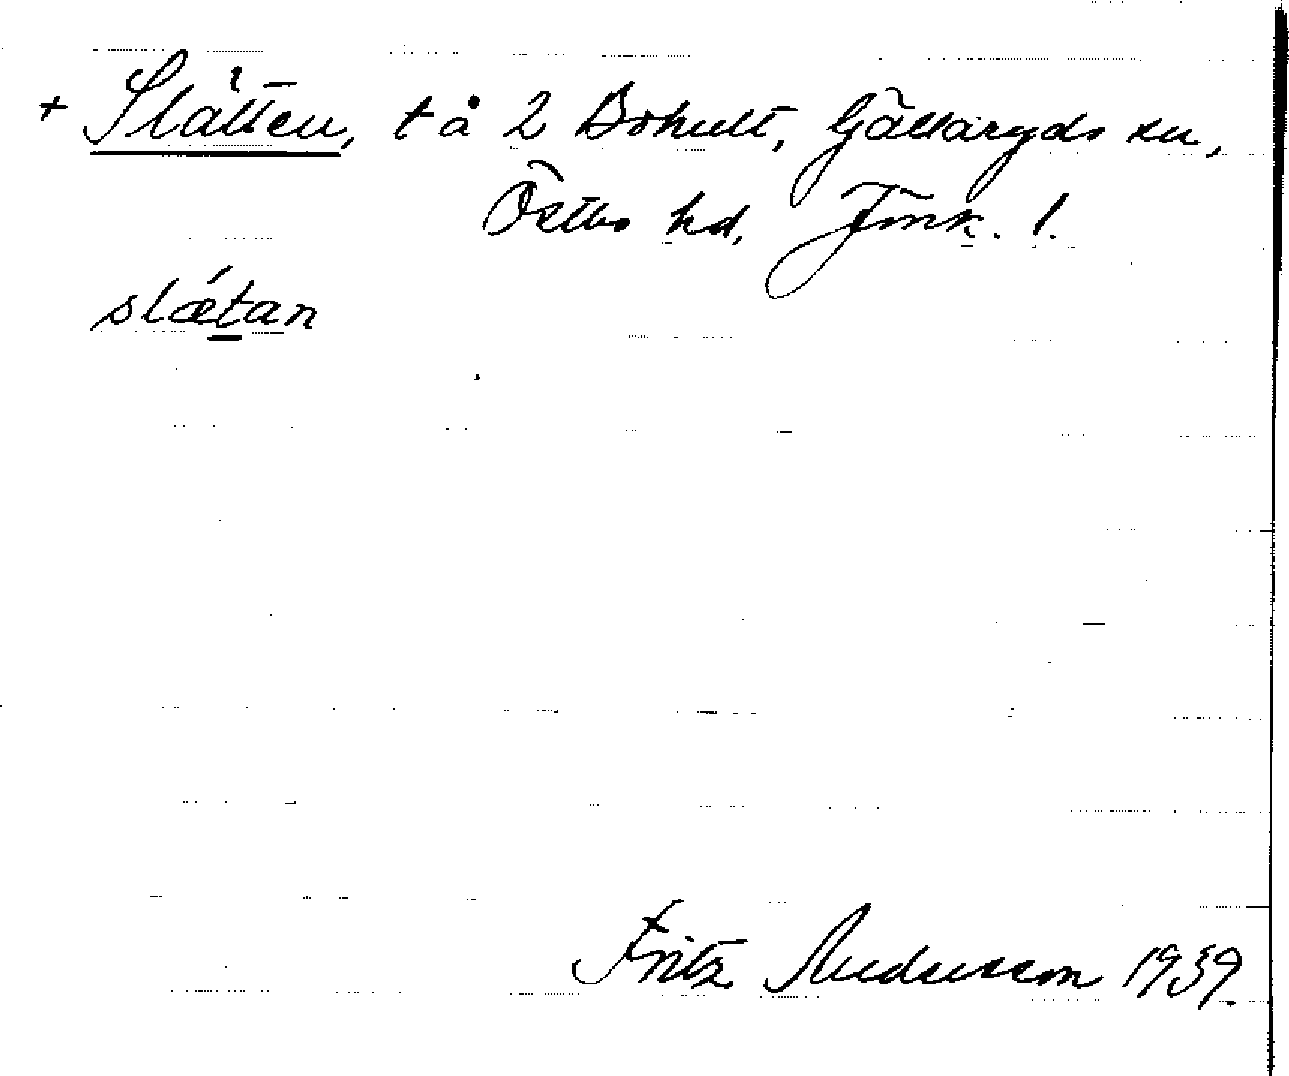 + Slätten, t å 2 Bohult, Gällaryds sn,
Östbo hd, Jmk. l.
slǽtan
Fritz Andersson 1939.